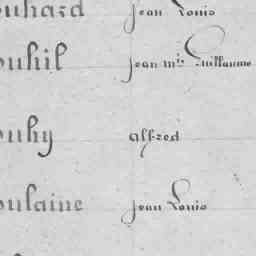 ouhard Jean Louis
ouhil Jean Mie Guillaume
ouhy Alfred
oulaine Jean Louis